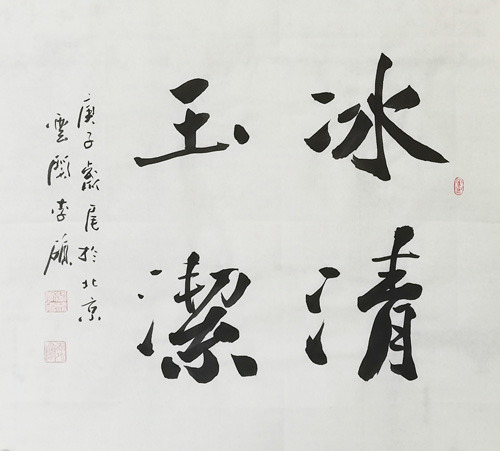 冰清
玉潔
庚子歲尾於北京
雲閣李碩